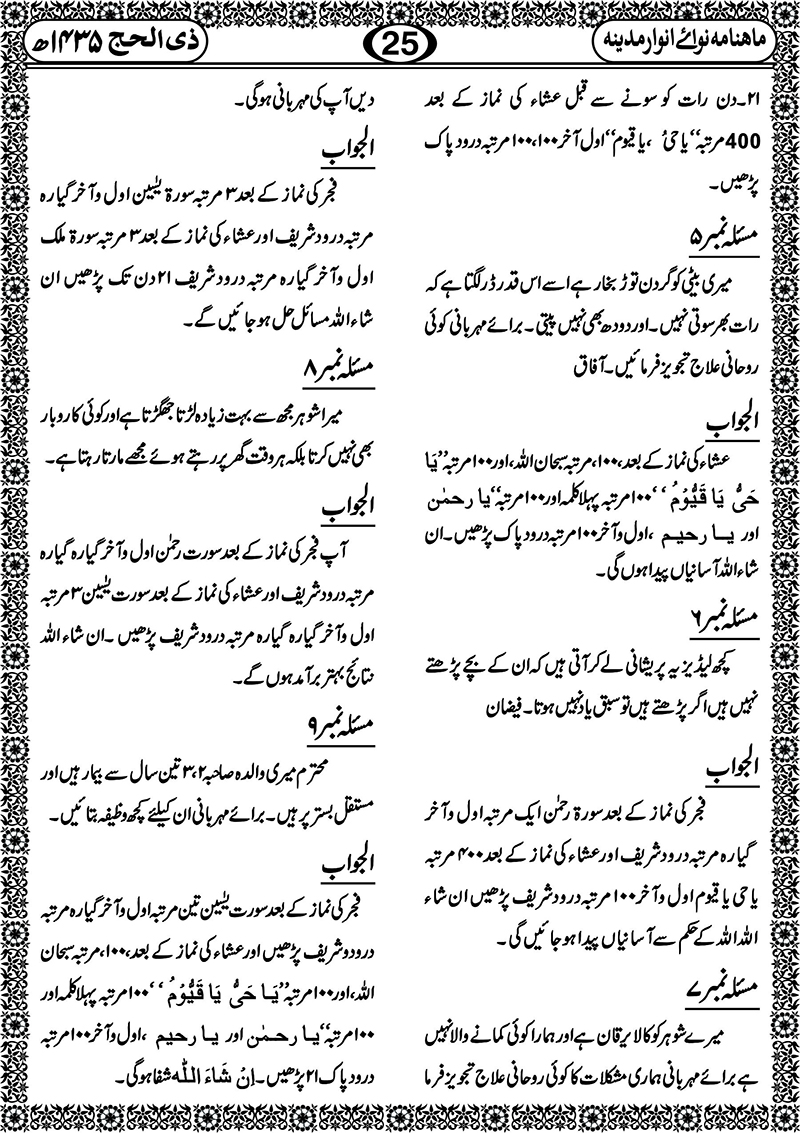 ماہنامہ نوائے انوار مدینہ
25
ذی الحج ۱۴۳۵ھ
۲۱۔دن رات کو سونے سے قبل عشاء کی نماز کے بعد
400 مرتبہ ‘‘یا حیُّ ،یا قیوم‘‘ اول آخر ۱۰۰،۱۰۰ مرتبہ درود پاک
پڑھیں۔
مسئلہ نمبر ۵
میری بیٹی کو گردن توڑ بخار ہے اسے اس قدر ڈر لگتا ہے کہ
رات بھر سوتی نہیں۔اور دودھ بھی نہیں پیتی۔ برائے مہربانی کوئی
روحانی علاج تجویز فرمائیں۔آفاق
الجواب
عشاء کی نماز کے بعد،۱۰۰،مرتبہ سبحان اللہ،اور ۱۰۰ مرتبہ ’’یَا
حَیُّ یَا قَیُّوْمُ ‘‘،۱۰۰ مرتبہ پہلا کلمہ اور ۱۰۰ مرتبہ ‘‘یا رحمٰن
اور یا رحیم ،اول و آخر ۱۰۰ مرتبہ درود پاک پڑھیں۔ان
شاء اللہ آسانیاں پیدا ہوں گی۔
مسئلہ نمبر ۶
کچھ لیڈیز یہ پریشانی لے کر آتی ہیں کہ ان کے بچے پڑھتے
نہیں ہیں اگر پڑھتے ہیں تو سبق یاد نہیں ہوتا۔فیضان
الجواب
فجر کی نماز کے بعد سورۃ رحمٰن ایک مرتبہ اول و آخر
گیارہ مرتبہ درود شریف اور عشاء کی نماز کے بعد ۴۰۰ مرتبہ
یا حی یا قیوم اول و آخر ۱۰۰ مرتبہ درود شریف پڑھیں ان شاء
اللہ اللہ کے حکم سے آسانیاں پیدا ہو جائیں گی ۔
مسئلہ نمبر ۷
میرے شوہر کو کالا یرقان ہے اور ہمارا کوئی کمانے والا نہیں
ہے برائے مہربانی ہماری مشکلات کا کوئی روحانی علاج تجویز فرما
دیں آپ کی مہربانی ہوگی۔
الجواب
فجر کی نماز کے بعد ۳ مرتبہ سورۃ یٰسین اول و آخر گیارہ
مرتبہ درود شریف اور عشاء کی نماز کے بعد ۳ مرتبہ سورۃ ملک
اول و آخر گیارہ مرتبہ درود شریف ۲۱ دن تک پڑھیں ان
شاء اللہ مسائل حل ہو جائیں گے۔
مسئلہ نمبر ۸
میرا شوہر مجھ سے بہت زیادہ لڑتا جھگڑتا ہے اور کوئی کاروبار
بھی نہیں کرتا بلکہ ہر وقت گھر پر رہتے ہوئے مجھے مارتا رہتا ہے۔
الجواب
آپ فجر کی نماز کے بعد سورت رحمٰن اول و آخر گیارہ گیارہ
مرتبہ درود شریف اور عشاء کی نماز کے بعد سورت یٰسین ۳ مرتبہ
اول و آخر گیارہ گیارہ مرتبہ درود شریف پڑھیں ۔ان شاء اللہ
نتائج بہتر برآمد ہوں گے۔
مسئلہ نمبر ۹
محترم میری والدہ صاحبہ ۳،۲ تین سال سے بیمار ہیں اور
مستقل بستر پر ہیں۔ برائے مہربانی ان کیلئے کچھ وظیفہ بتائیں۔
الجواب
فجر کی نماز کے بعد سورت یٰسین تین مرتبہ اول و آخر گیارہ مرتبہ
درودو شریف پڑھیں اور عشاء کی نماز کے بعد،۱۰۰،مرتبہ سبحان
اللہ،اور ۱۰۰ مرتبہ ’’یَا حَیُّ یَا قَیُّوْمُ ‘‘،۱۰۰ مرتبہ پہلا کلمہ اور
۱۰۰ مرتبہ ‘‘یا رحمٰن اور یا رحیم ،اول و آخر ۱۰۰ مرتبہ
درود پاک ۲۱ پڑھیں۔اِنْ شَاءَ اللّٰہ شفا ہوگی۔